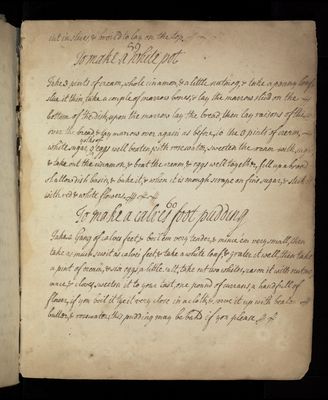 cut in slices, & would to lay on the top
To make a white pot
Take 3 pints of cream, whole cinamon, & a little nutmeg, & take a penny loaf,
slice it thin, take a couple of marrow bones, & lay the marrow sliced on the
bottom of the dish, upon the marrow lay the bread, then lay raisons of the
over the bread, & lay marrow over again as before, to the 3 pints of cream,
white sugar, 9 eggs well beaten with rosewater, sweeten the cream with
& take out the cinamon, & beat the cream & eggs well together, fill
shallow dish basin, & bake it, & when it is enough scrape on fine sugar, & stick
with red & white flowers.
To make a calves foot pudding
Take a gang of calves feet, & boil em very tender, & mince em very small, then
take as much suit as calves feet, & take a white loaf, & grate it well, then take
a pint of cream, & six eggs, a little salt, take out two whites, warm it with nutmeg
mace, & cloves, sweeten it to your tast, one pound of currans, a handfull of
flower, if you boil it tye it very close in a cloth, & serve it up with beaten
butter, & rosewater, this pudding may be bak'd if you please